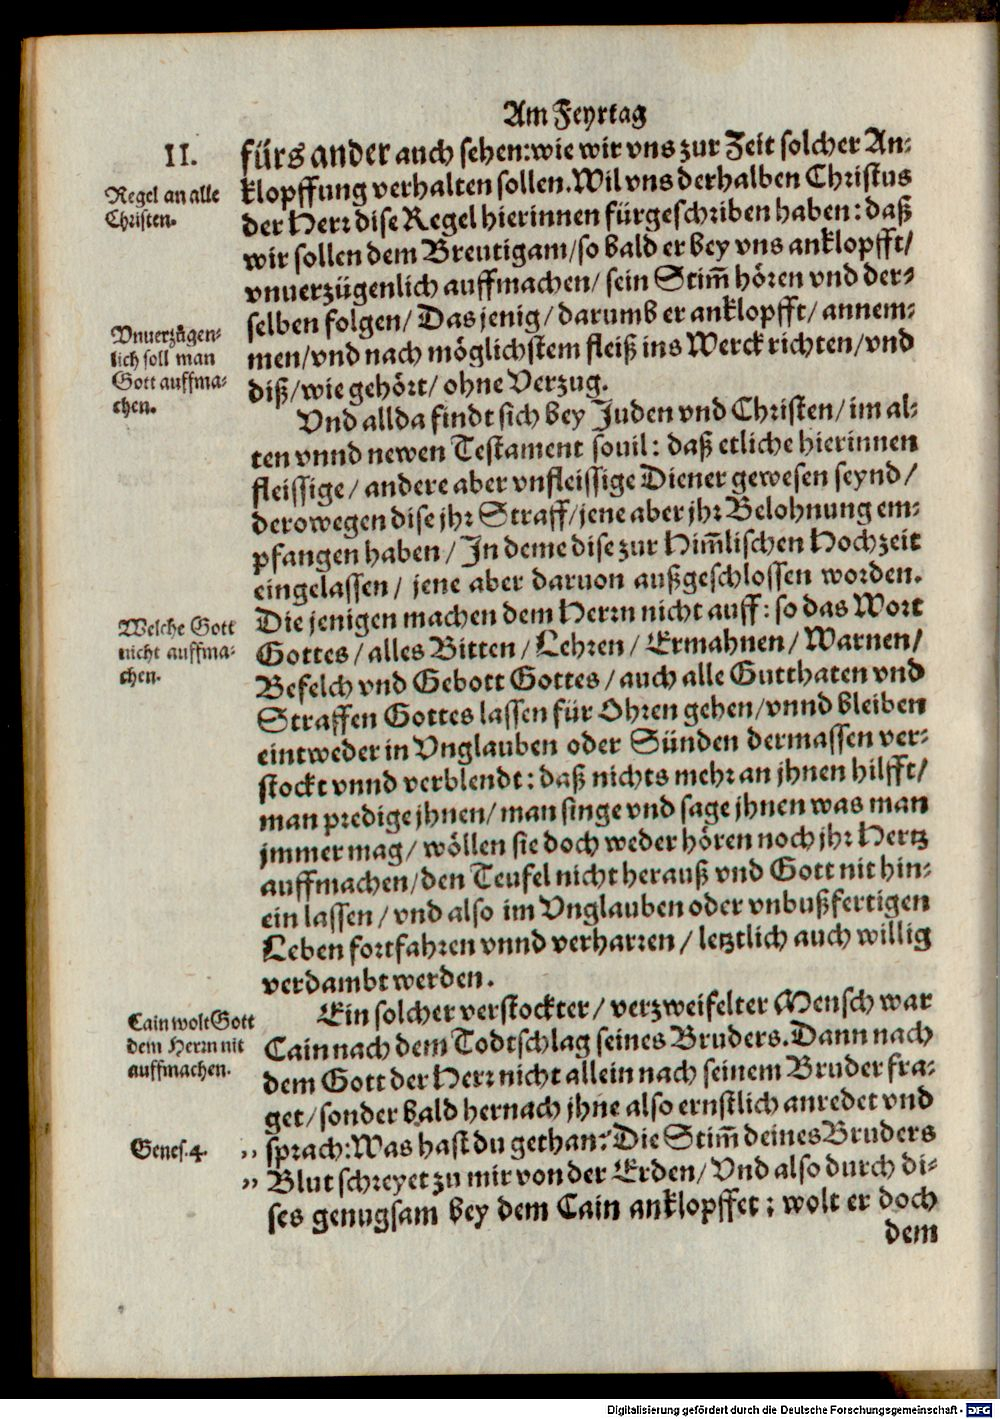 Am Feyrtag
II.
fürs ander auch sehen: wie wir vns zur Zeit solcher An-
Regel an alle
Christen.
klopffung verhalten sollen. Wil vns derhalben Christus
der Herr dise Regel hierinnen fürgeschriben haben: daß
wir sollen dem Breutigam/ so bald er bey vns anklopfft/
vnuerzügenlich auffmachen/ sein Stim̃ hören vnd der-
selben folgen/ Das jenig/ darumb er anklopfft/ annem-
Vnuerzügen-
lich soll man
Gott auffma-
chen.
men/ vnd nach möglichstem fleiß ins Werck richten/ vnd
diß/ wie gehört/ ohne Verzug.
Vnd allda findt sich bey Juden vnd Christen/ im al-
ten vnnd newen Testament souil: daß etliche hierinnen
fleissige/ andere aber vnfleissige Diener gewesen seynd/
derowegen dise jhr Straff/ jene aber jhr Belohnung em-
pfangen haben/ In deme dise zur Him̃lischen Hochzeit
eingelassen/ jene aber daruon außgeschlossen worden.
Die jenigen machen dem Herrn nicht auff: so das Wort
Welche Gott
nicht auffma-
chen.
Gottes/ alles Bitten/ Lehren/ Ermahnen/ Warnen/
Befelch vnd Gebott Gottes/ auch alle Gutthaten vnd
Straffen Gottes lassen für Ohren gehen/ vnnd bleiben
eintweder in Vnglauben oder Sünden dermassen ver-
stockt vnnd verblendt: daß nichts mehr an jhnen hilfft/
man predige jhnen/ man singe vnd sage jhnen was man
jmmer mag/ wöllen sie doch weder hören noch jhr Hertz
auffmachen/ den Teufel nicht herauß vnd Gott nit hin-
ein lassen/ vnd also im Vnglauben oder vnbußfertigen
Leben fortfahren vnnd verharren/ letztlich auch willig
verdambt werden.
Ein solcher verstockter/ verzweifelter Mensch war
Cain wolt Gott
dem Herrn nit
auffmachen.
Cain nach dem Todtschlag seines Bruders. Dann nach
dem Gott der Herr nicht allein nach seinem Bruder fra-
get/ sonder bald hernach jhne also ernstlich anredet vnd
Genes. 4.
„ sprach: Was hast du gethan? Die Stim̃ deines Bruders
„ Blut schreyet zu mir von der Erden/ Vnd also durch di-
ses genugsam bey dem Cain anklopffet: wolt er doch
dem
Digitalisierung gefördert durch die Deutsche Forschungsgemeinschaft - DFG